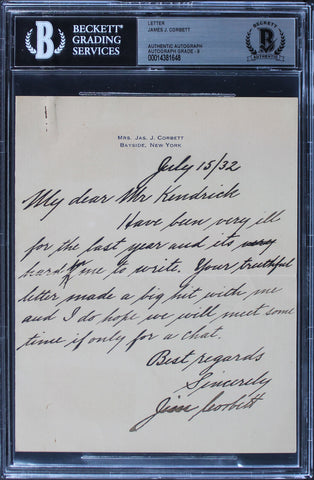 BECKETT
GRADING
SERVICES
LETTER
JAMES J. CORBETT
AUTHENTIC AUTOGRAPH
AUTOGRAPH GRADE - 9
00014381648
BECKETT
AUTHENTIC
MRS. JAS. J. CORBETT
BAYSIDE, NEW YORK
July 15/32
My dear Mr Kendrick
Have been very ill
for the last year and its very
hard for me to write. Your truthful
letter made a big hit with me
and I do hope we will meet some
time if only for a chat.
Best regards
Sincerely
Jim Corbett